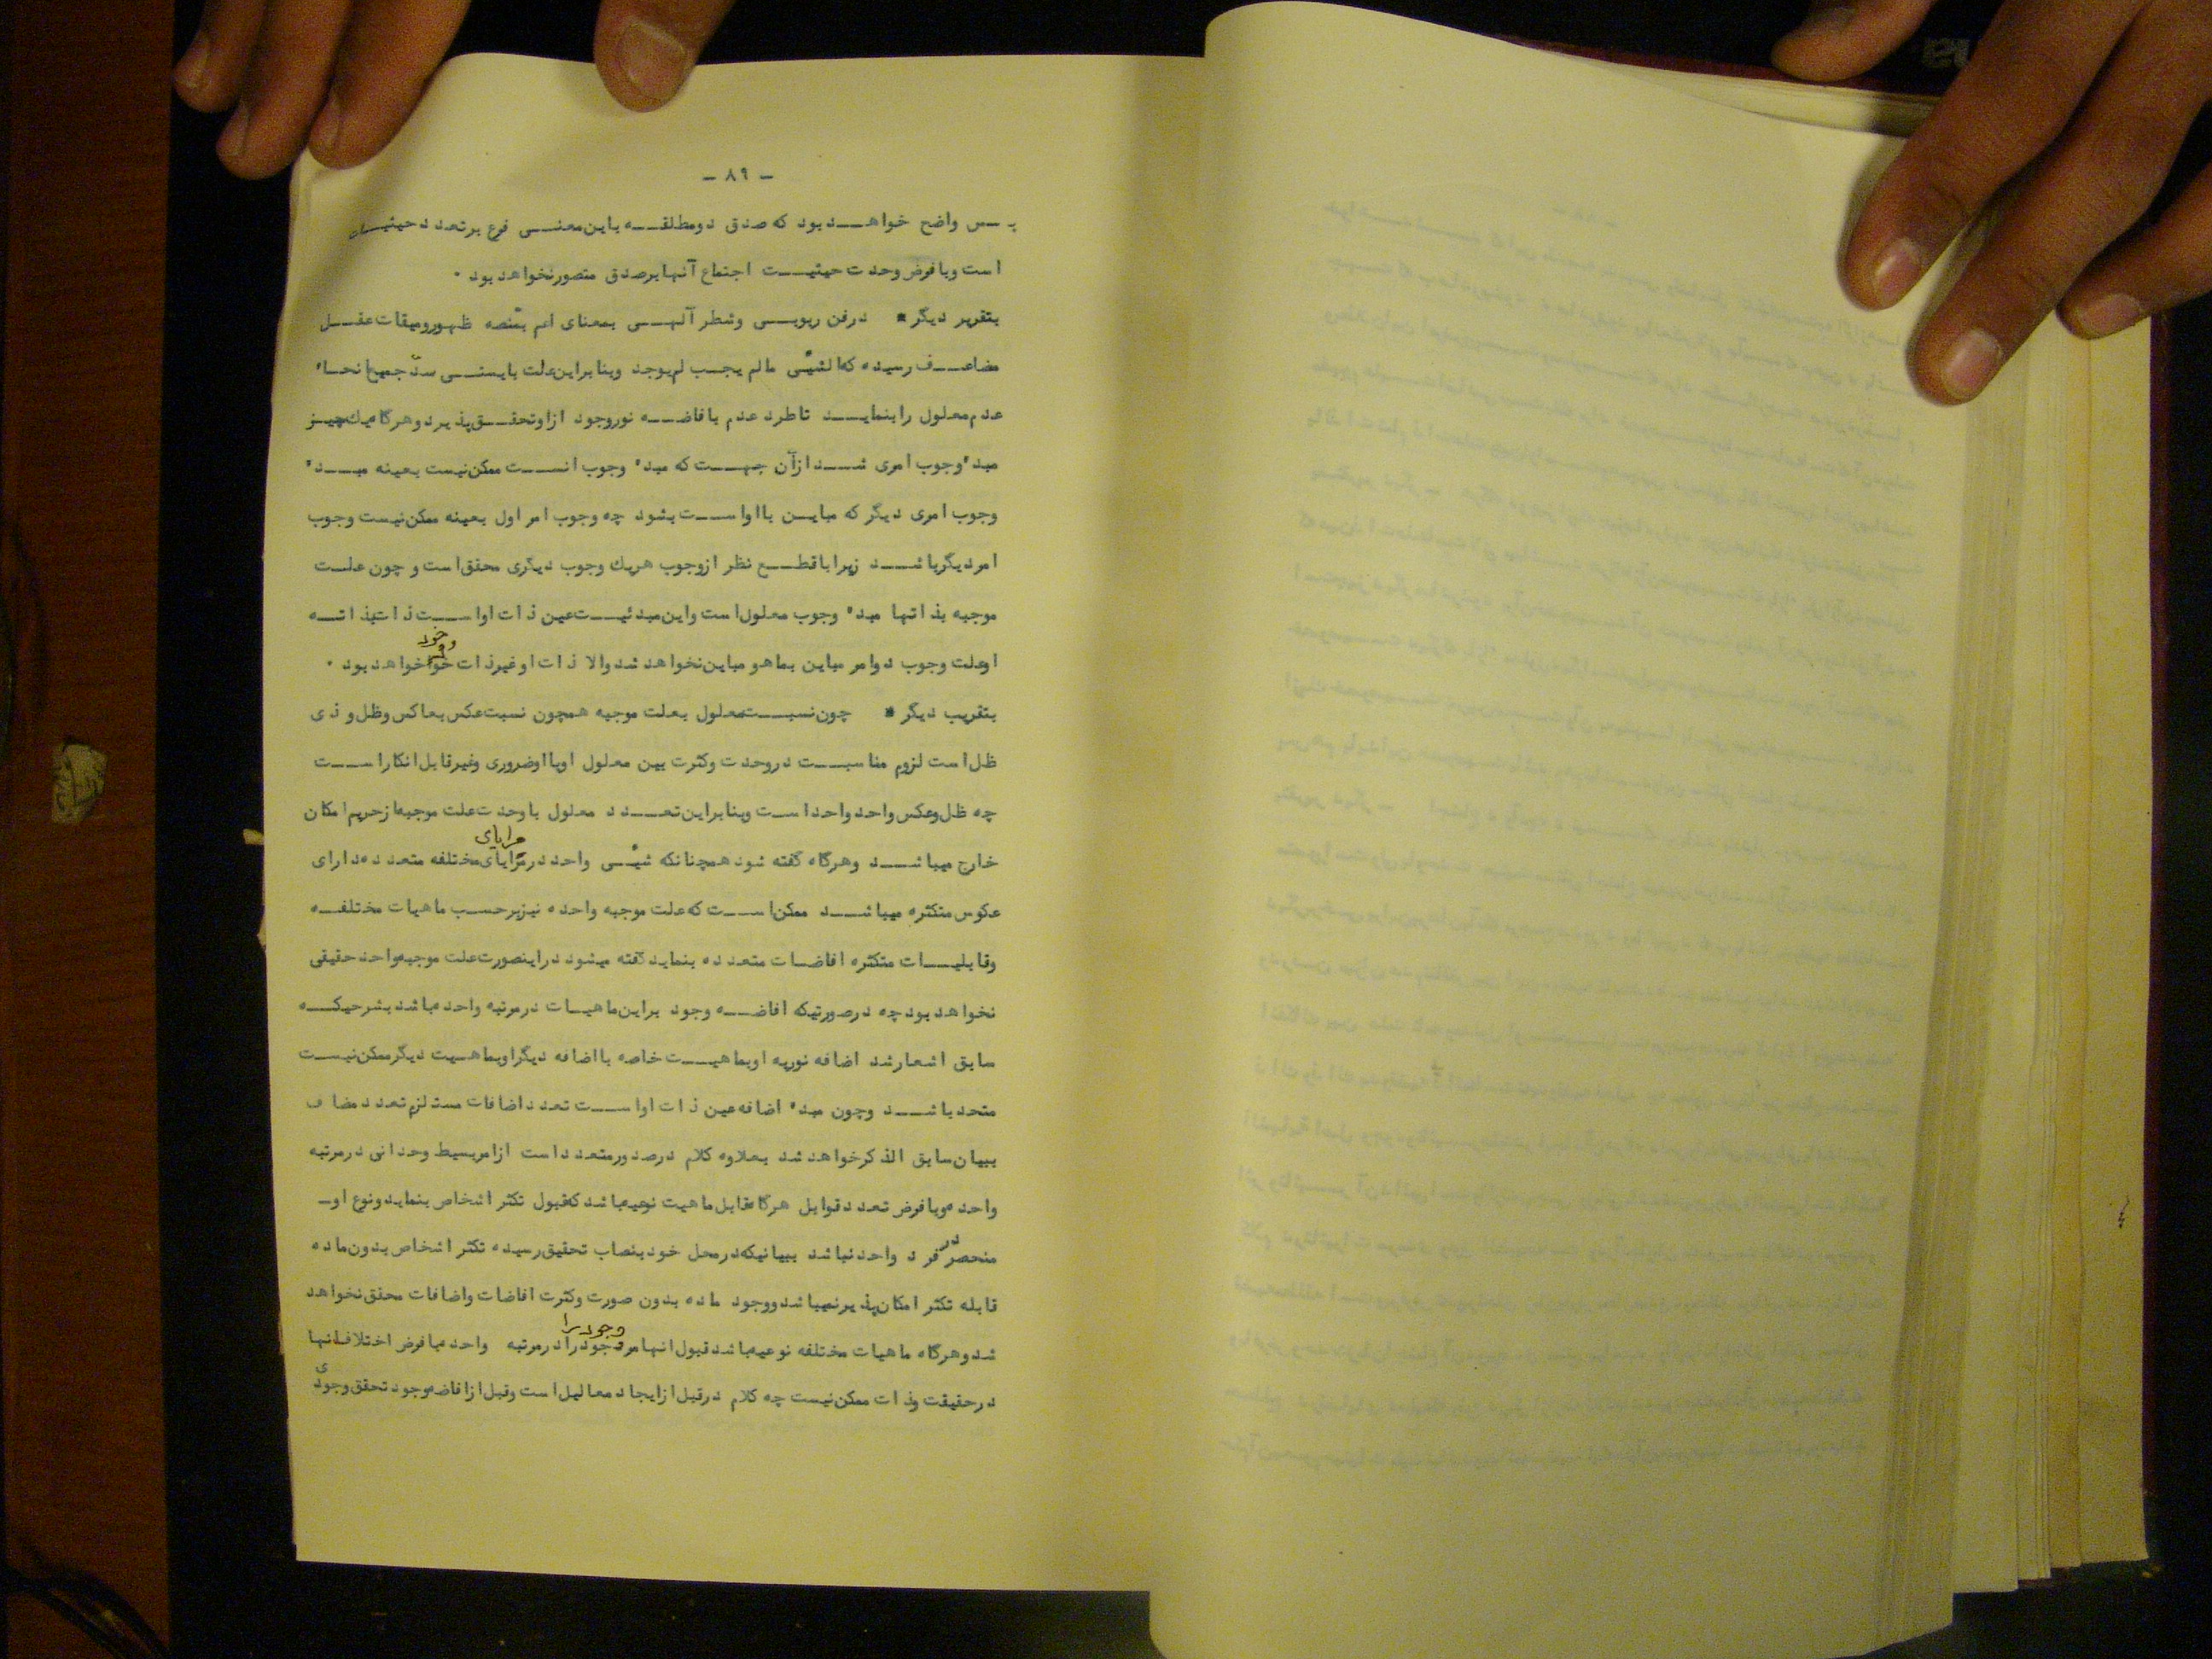 - ۸۹ -
پس واضح خواهد بود که صدق دو مطلقه باین معنی فرع بر تعدد حیثیات
است و با فرض وحدت حیثیت اجتماع آنها بر صدق متصور نخواهد بود ٠
بتقریر دیگر * در فن ربوبی و شطر آلهی بمعنای اعم بمنصه ظهور و میقات عقل
مضاعف رسیده که الشیئی مالم یجب لم یوجد و بنابراین علت بایستی سدّ جمیع انحاء
عدم معلول را بنماید تا طرد عدم بافاضه نور وجود از او تحقق پذیرد و هرگاه یك چیز
مبدء وجوب امری شد از آن جهت که مبدء وجوب انست ممکن نیست بعینه مبدء
وجوب امری دیگر که مباین با او است بشود چه وجوب امر اول بعینه ممکن نیست وجوب
امر دیگر باشد زیرا با قطع نظر از وجوب هریك وجوب دیگری محقق است و چون علت
موجبه بذاتها مبدء وجوب معلول است و این مبدئیت عین ذات او است ذات بذاته
او علت وجوب دو امر مباین بما هو مباین نخواهد شد والا ذات او غیر ذات خود خواهد بود ٠
بتقریب دیگر * چون نسبت معلول بعلت موجبه همچون نسبت عکس بعاکس و ظل و ذی
ظل است لزوم مناسبت در وحدت و کثرت بین معلول او با او ضروری و غیر قابل انکار است
چه ظل و عکس واحد واحد است و بنابراین تعدد معلول با وحدت علت موجبه از حریم امکان
خارج میباشد و هرگاه گفته شود همچنانکه شیئی واحد در مرایای مختلفه متعدده دارای
عکوس متکثره میباشد ممکن است که علت موجبه واحده نیز بر حسب ماهیات مختلفه
و قابلیات متکثره افاضات متعدده بنماید گفته میشود در اینصورت علت موجبه واحد حقیقی
نخواهد بود چه در صورتیکه افاضه وجود بر این ماهیات در مرتبه واحده باشد بشرحیکه
سابق اشعار شد اضافه نوریه او بماهیت خاصه با اضافه دیگر او بماهیت دیگر ممکن نیست
متحد باشد و چون مبدء اضافه عین ذات او است تعدد اضافات مستلزم تعدد مضاف
ببیان سابق الذکر خواهد شد بعلاوه کلام در صدور متعدد است از امر بسیط وحدانی در مرتبه
واحده و با فرض تعدد قوابل هرگاه قابل ماهیت نوعیه باشد که قبول تکثر اشخاص بنماید و نوع او
منحصر در فرد واحد نباشد ببیانیکه در محل خود بنصاب تحقیق رسیده تکثر اشخاص بدون ماده
قابله تکثر امکان پذیر نمیباشد و وجود ماده بدون صورت و کثرت افاضات و اضافات محقق نخواهد
شد و هرگاه ماهیات مختلفه نوعیه باشد قبول انها مر وجود را در مرتبه واحده با فرض اختلاف انها
در حقیقت و ذات ممکن نیست چه کلام در قبل از ایجاد معالیل است و قبل از افاضه وجود تحقق وجودی